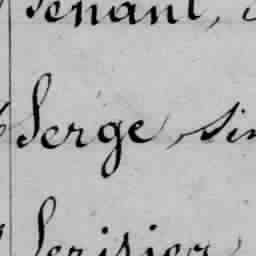 Tenant,
Serge, sin
Serisier